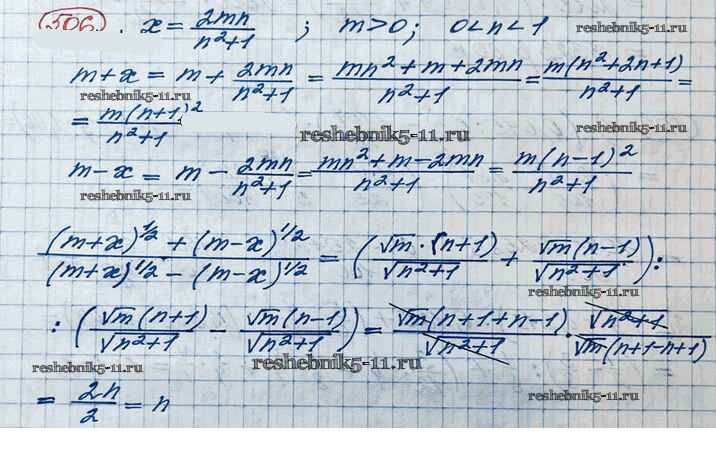 506. x = 2mn/(n²+1) ; m>0; 0<n<1
reshebnik5-11.ru
m+x = m + 2mn/(n²+1) = (mn²+m+2mn)/(n²+1) = m(n²+2n+1)/(n²+1) =
reshebnik5-11.ru reshebnik5-11.ru
= m(n+1)²/(n²+1)
reshebnik5-11.ru reshebnik5-11.ru
m-x = m - 2mn/(n²+1) = (mn²+m-2mn)/(n²+1) = m(n-1)²/(n²+1)
reshebnik5-11.ru
((m+x)^1/2 + (m-x)^1/2)/((m+x)^1/2 - (m-x)^1/2) = (√m·(n+1)/√(n²+1) + √m(n-1)/√(n²+1)):
reshebnik5-11.ru
:(√m(n+1)/√(n²+1) - √m(n-1)/√(n²+1)) = √m(n+1+n-1)/√(n²+1) · √(n²+1)/(√m(n+1-n+1))
reshebnik5-11.ru reshebnik5-11.ru reshebnik5-11.ru
= 2n/2 = n
reshebnik5-11.ru